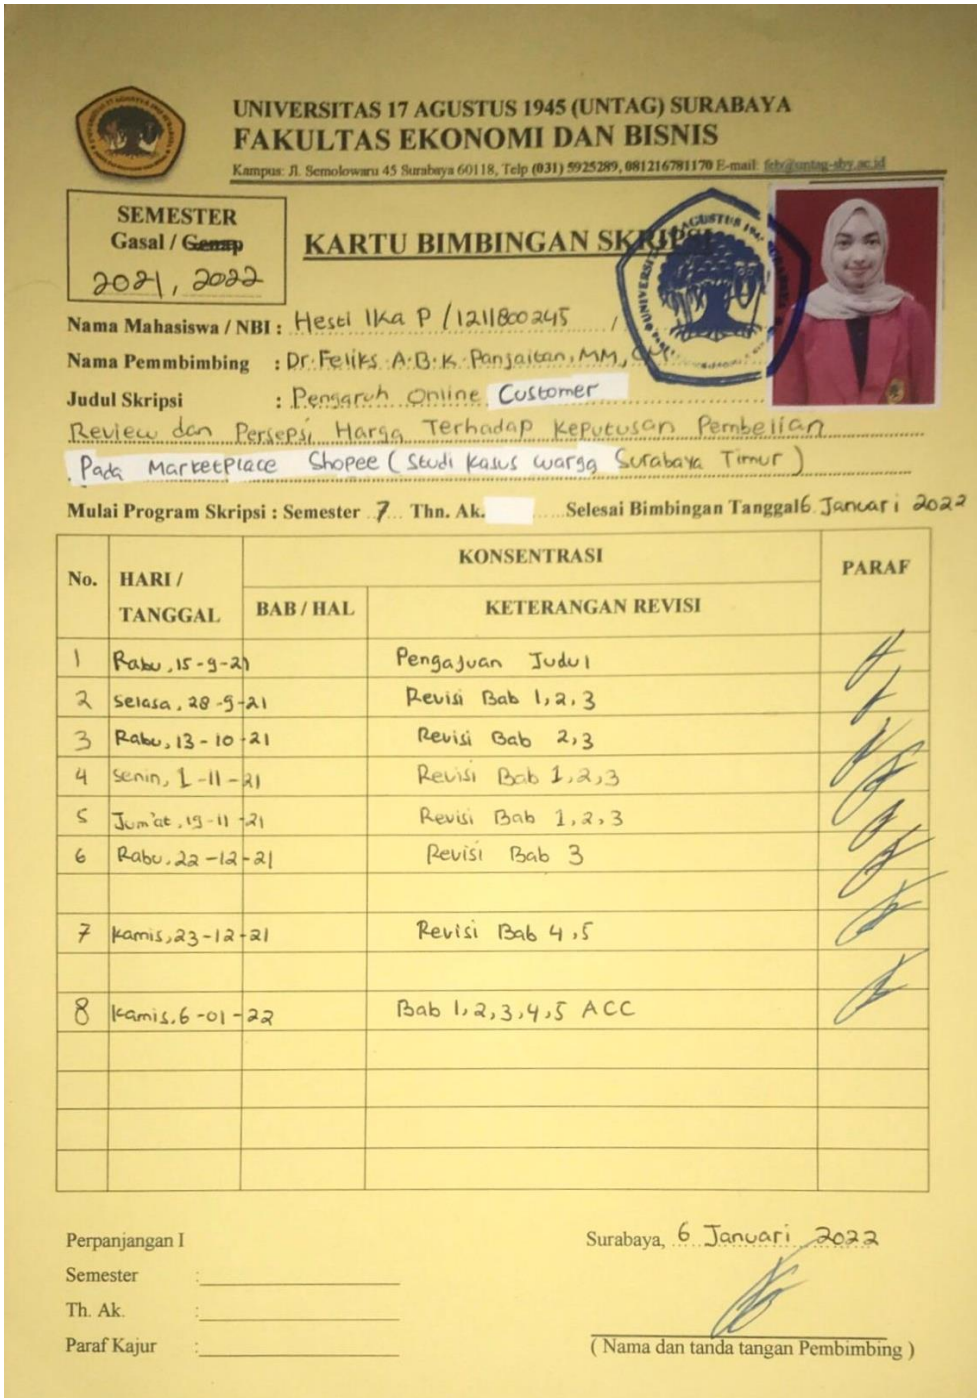 UNIVERSITAS 17 AGUSTUS 1945 (UNTAG) SURABAYA
FAKULTAS EKONOMI DAN BISNIS
Kampus: Jl. Semolowaru 45 Surabaya 60118, Telp (031) 5925289, 081216781170 E-mail: feb@untag-sby.ac.id
SEMESTER
Gasal / Genap
2021, 2022
KARTU BIMBINGAN SKRIPSI
Nama Mahasiswa / NBI : Hesti Ika P / 1211800245 /
Nama Pemmbimbing : Dr. Feliks A.B.K. Panjaitan, MM,
Judul Skripsi : Pengaruh Online Customer
Review dan Persepsi Harga Terhadap Keputusan Pembelian
Pada Marketplace Shopee (Studi Kasus warga Surabaya Timur)
Mulai Program Skripsi : Semester 7 Thn. Ak. Selesai Bimbingan Tanggal 6 Januari 2022
No. HARI / TANGGAL KONSENTRASI PARAF
BAB / HAL KETERANGAN REVISI
1 Rabu, 15-9-21 Pengajuan Judul
2 Selasa, 28-9-21 Revisi Bab 1,2,3
3 Rabu, 13-10-21 Revisi Bab 2,3
4 Senin, 1-11-21 Revisi Bab 1,2,3
5 Jum'at, 19-11-21 Revisi Bab 1,2,3
6 Rabu, 22-12-21 Revisi Bab 3
7 Kamis, 23-12-21 Revisi Bab 4,5
8 Kamis, 6-01-22 Bab 1,2,3,4,5 ACC
Perpanjangan I
Semester :
Th. Ak. :
Paraf Kajur :
Surabaya, 6 Januari 2022
( Nama dan tanda tangan Pembimbing )